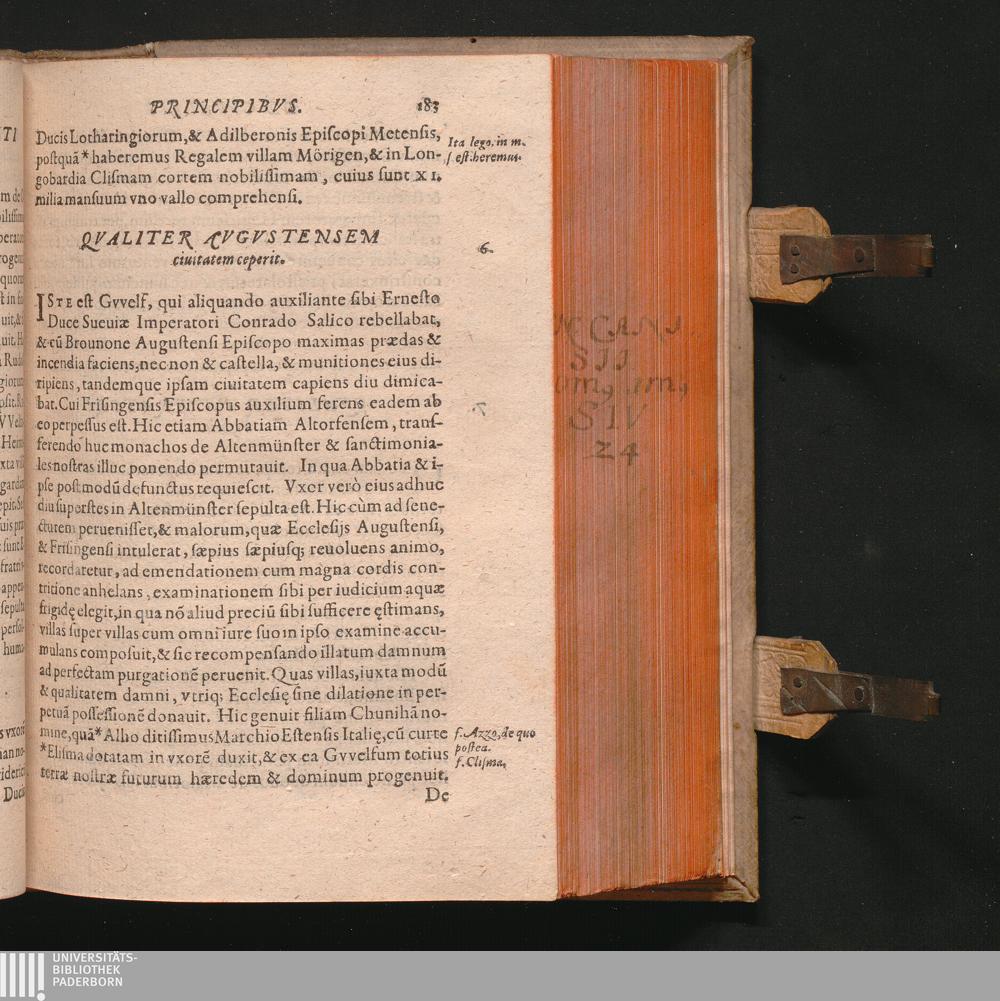 PRINCIPIBVS. 183
Ducis Lotharingiorum,& Adilberonis Epiſcopi Metenſis,
poſtquã * haberemus Regalem villam Mörigen,& in Lon-
gobardia Cliſmam cortem nobiliſſimam, cuius ſunt XI.
milia manſuum vno vallo comprehenſi.
Ita lego. in m.
ſ eſt: heremus.
QVALITER AVGVSTENSEM
ciuitatem ceperit.
6.
ISTE eſt Gvvelf, qui aliquando auxiliante ſibi Erneſto
Duce Sueuiæ Imperatori Conrado Salico rebellabat,
& cũ Brounone Auguſtenſi Epiſcopo maximas prædas &
incendia faciens, nec non & caſtella, & munitiones eius di-
ripiens, tandemque ipſam ciuitatem capiens diu dimica-
bat. Cui Friſingenſis Epiſcopus auxilium ferens eadem ab
eo perpeſſus eſt. Hic etiam Abbatiam Altorfenſem, tranſ-
ferendo huc monachos de Altenmünſter & ſanctimonia-
les noſtras illuc ponendo permutauit. In qua Abbatia & i-
pſe poſtmodũ defunctus requieſcit. Vxor verò eius adhuc
diu ſuperſtes in Altenmünſter ſepulta eſt. Hic cùm ad ſene-
ctutem perueniſſet,& malorum, quæ Eccleſijs Auguſtenſi,
& Friſingenſi intulerat, ſæpius ſæpiuſq; reuoluens animo,
recordaretur, ad emendationem cum magna cordis con-
tritione anhelans, examinationem ſibi per iudicium aquæ
frigidę elegit, in qua nõ aliud preciũ ſibi ſufficere ęſtimans,
villas ſuper villas cum omni iure ſuo in ipſo examine accu-
mulans compoſuit,& ſic recompenſando illatum damnum
ad perfectam purgationẽ peruenit. Quas villas, iuxta modũ
& qualitatem damni, vtriq; Eccleſię ſine dilatione in per-
petuã poſſeſſionẽ donauit. Hic genuit filiam Chunihã no-
mine, quã * Alho ditiſſimus Marchio Eſtenſis Italię, cũ curte
* Eliſma dotatam in vxorẽ duxit,& ex ea Gvvelfum totius
terræ noſtræ futurum hæredem & dominum progenuit.
ſ. Azzo, de quo
poſtea.
ſ. Cliſma,
De
SIV
24
UNIVERSITÄTS-
BIBLIOTHEK
PADERBORN